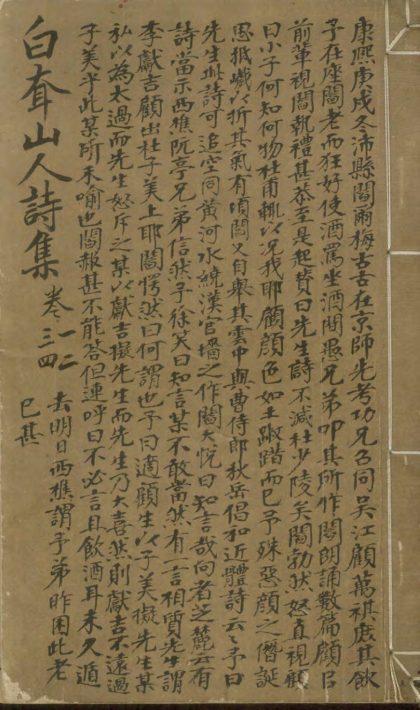 康熙庚戌冬沛縣閻爾梅古古在京師先考功兄召同吳江顧萬祺庶其飲
予在座閻老而狂好使酒罵坐酒闌愚兄弟叩其所作閻朗誦數篇顧官
前輩視閻執禮甚恭至是起贊曰先生詩不減杜少陵矣閻勃然怒直視顧
曰小子何知何物杜甫輒以況我耶顧顏色如土踧踖而已予殊惡顏之僭誕
思抵巇以折其氣有頃閻又自舉其雲中與曹侍郎秋岳倡和近體詩云云予曰
先生此詩可追空同黃河水繞漢官墻之作閻大悅曰知言哉向者芝麓云有
詩當示西樵阮亭兄弟信然予徐笑曰知言某不敢當然有一言相質先生謂
李獻吉顧出杜子美上耶閻愕然曰何謂也予曰適顧生以子美擬先生某
私以為太過而先生怒斥之某以獻吉擬先生而先生乃大喜然則獻吉不遠過
子美乎此某所未喻也閻赧甚不能答但連呼曰不必言且飲酒耳未久遁
去明日西樵謂予弟昨困此老
已甚
白耷山人詩集
卷一二三四